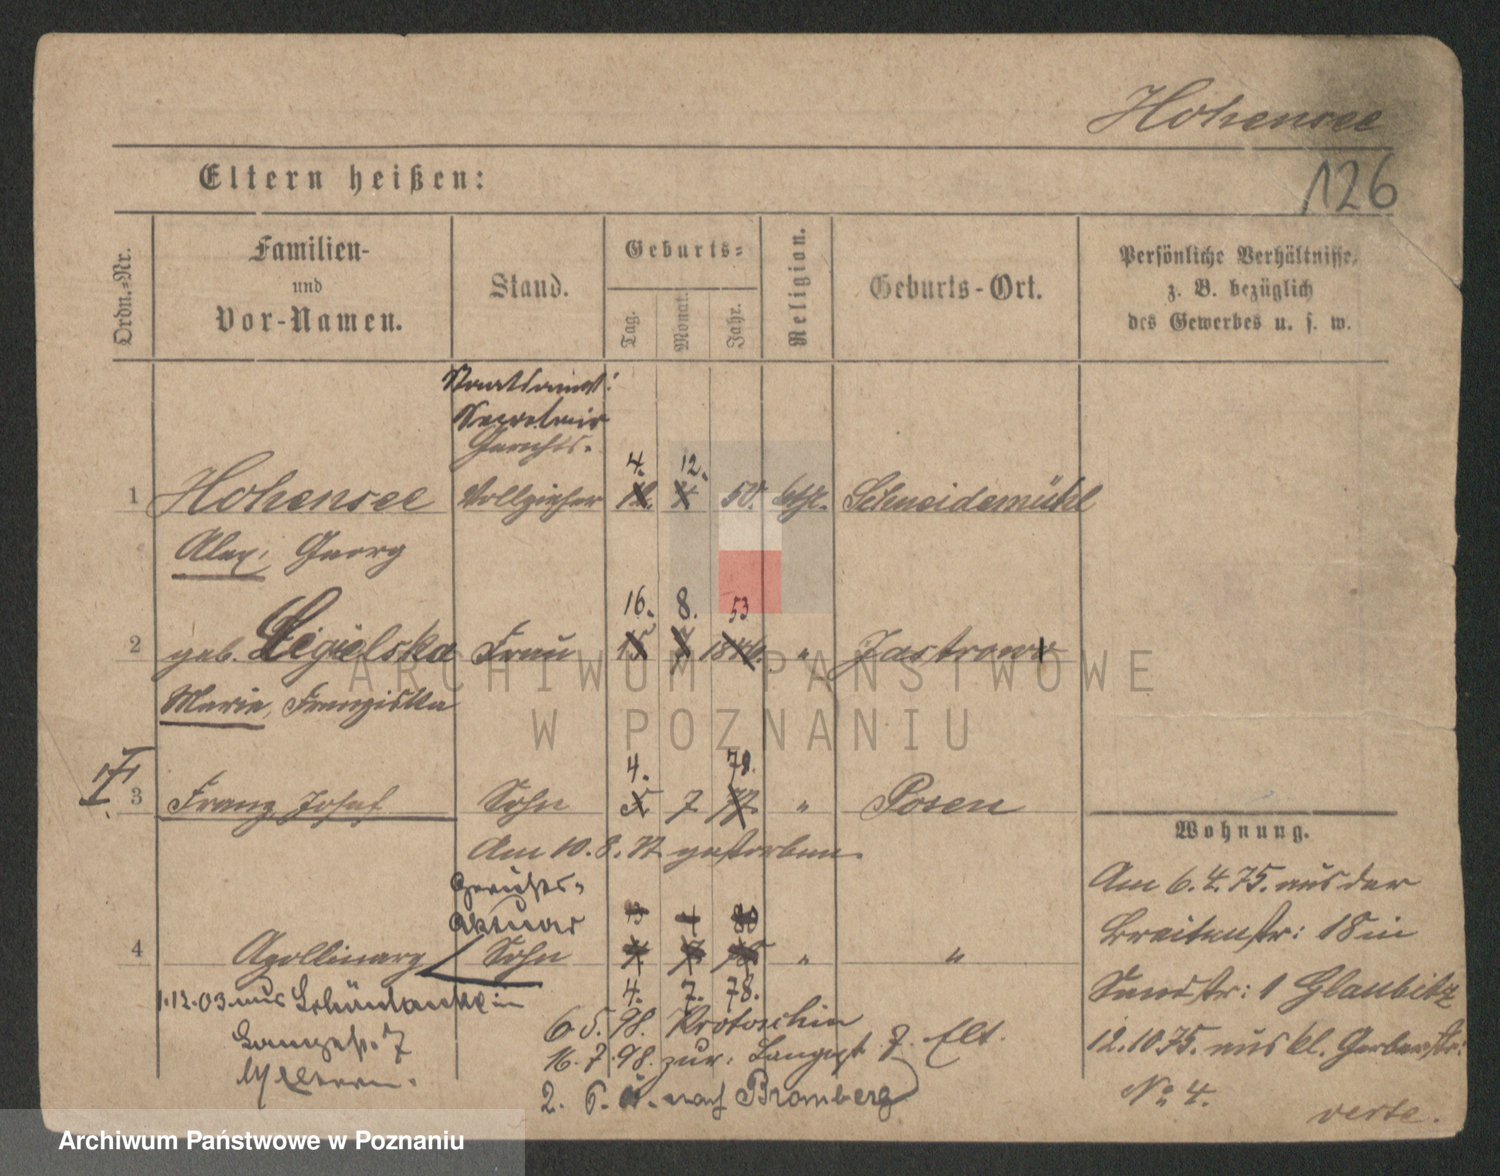 Hohensee
126
Eltern heißen:
Ordn.-Nr.
Familien-
und
Vor-Namen.
Stand.
Geburts-
Tag.
Monat.
Jahr.
Religion.
Geburts-Ort.
Persönliche Verhältnisse,
z. B. bezüglich
des Gewerbes u. s. w.
Secretair
Gerichts-
4. 12.
1 Hohensee Vollzieher 50. kath. Schneidemühl
Alex, Georg
16. 8. 53
2 geb. Legielska Frau 15 " Jastrow
Marie, Franziska
4. 78.
3 Franz Josef Sohn 7 " Posen
Am 10.8. gestorben.
Wohnung.
Am 6.4.75. aus der
Breitenstr: 18 in
Sandstr: 1 Glaubitz
12.10.75. aus kl. Gerberstr:
No 4.
verte.
Gerichts-
Aktuar
13 4 80
4 Apollinary Sohn " "
4. 7. 78.
1.12.03 aus Schönlanke in
Langestr. 7
b/ Eltern.
6.5.98. Krotoschin
16.7.98. zur: Langest 7. Elt.
2. 6. nach Bromberg
ARCHIWUM PAŃSTWOWE
W POZNANIU
Archiwum Państwowe w Poznaniu